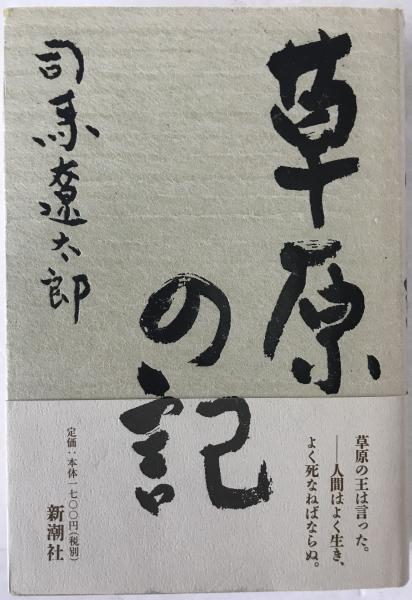 草原
の記
司馬遼太郎
草原の王は言った。
──人間はよく生き、
よく死なねばならぬ。
定価:本体一七〇〇円(税別)
新潮社